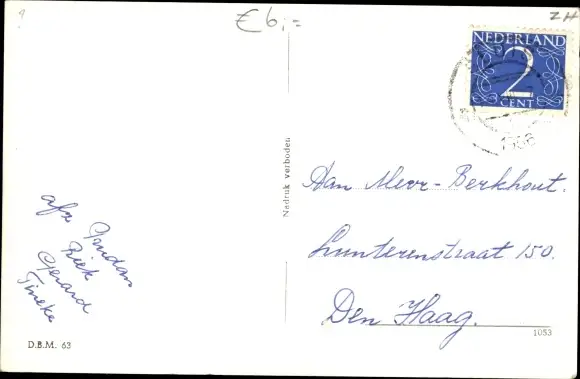 9
€ 6,=
ZH
NEDERLAND
2
CENT
Nadruk verboden
Aan Mevr - Berkhout.
Lunterenstraat 150.
Den Haag.
afz
Riek
Gerard
Tineke
D.B.M. 63
1053